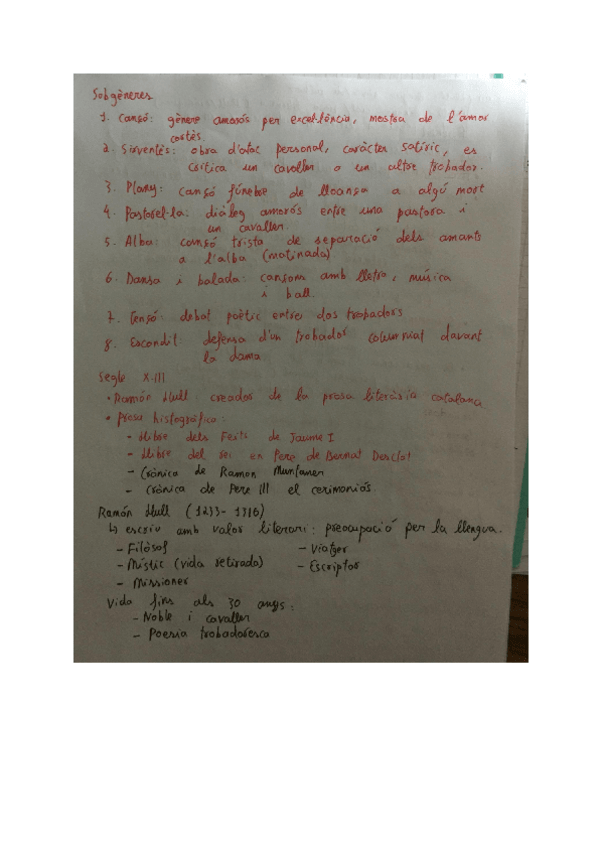 Subgèneres
1. Cançó: gènere amorós per excel·lència, mostra de l'amor
cortès.
2. Sirventès: obra d'atac personal, caràcter satíric, es
critica un cavaller o un altre trobador.
3. Plany: cançó fúnebre de lloansa a algú mort
4. Pastorel·la: diàleg amorós entre una pastora i
un cavaller.
5. Alba: cançó trista de separació dels amants
a l'alba (matinada)
6. Dansa i balada: cançons amb lletra, música
i ball.
7. Tençó: debat poètic entre dos trobadors
8. Escondit defensa d'un trobador calumniat davant
la dama
Segle XIII
• Ramón Llull creador de la prosa literària catalana
• Prosa histogràfica:
- Llibre dels Feits de Jaume I
- Llibre del rei en Pere de Bernat Desclot
- Crònica de Ramon Muntaner
- Crònica de Pere III el cerimoniós.
Ramón Llull (1233-1316)
↳ escriu amb valor literari: preocupació per la llengua.
- Filòsof - Viatger
- Místic (vida retirada) - Escriptor
- Missioner
Vida fins als 30 anys:
- Noble i cavaller
- Poesia trobadoresca